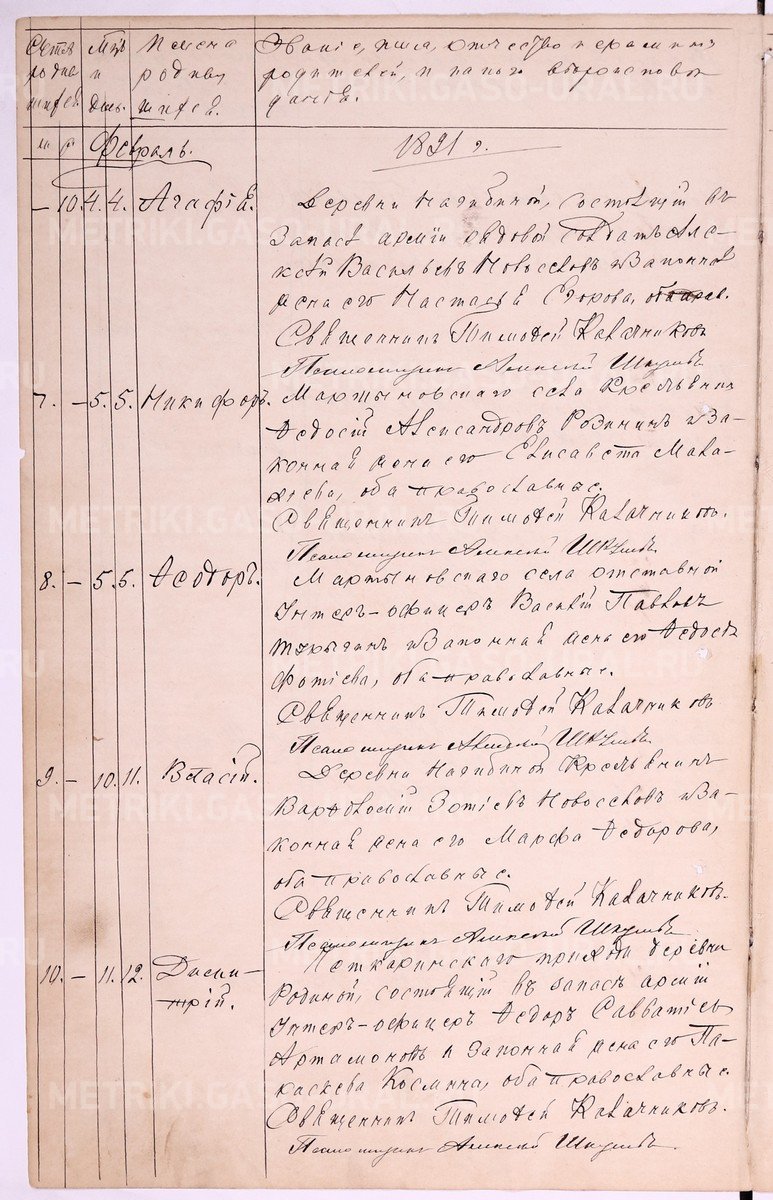 Счетъ Мцъ Имена Званіе, имя, отчество и фамилія
родив и родив родителей, и какого вѣроисповѣ
шихся день. шихся. данія.
м ж Февраль. 1891 г.
– 10. 4. 4. Агафія. Деревни Нагибиной, состоящій въ
запасѣ арміи рядовой солдатъ Алек-
сѣй Васильевъ Новоселовъ и законная
жена его Настасья Егорова, оба прав.
Священникъ Тимоѳей Калачниковъ
Псаломщикъ Алексей
7. – 5. 5. Никифоръ. Мартыновскаго села Крестьянинъ
Ѳедосій Александровъ Родинъ и за-
конная жена его Елисавета Мака-
рьева, оба православные.
Священникъ Тимоѳей Калачниковъ.
Псаломщикъ Алексей
8. – 5. 5. Ѳеодоръ. Мартыновскаго села отставной
Унтеръ-офицеръ Василій Павловъ
и законная жена его Ѳедосья
Фотіева, оба православные.
Священникъ Тимоѳей Калачниковъ
Псаломщикъ Алексей
9. – 10. 11. Власій. Деревни Нагибиной Крестьянинъ
Варѳоломей Зотіевъ Новоселовъ и за-
конная жена его Марфа Ѳедорова,
оба православные.
Священникъ Тимоѳей Калачниковъ.
Псаломщикъ Алексей
10. – 11. 12. Дими- прихода деревни
трій. Родиной, состоящій въ запасѣ арміи
Унтеръ-офицеръ Ѳедоръ Савватіевъ
Артамоновъ и законная жена его Па-
раскева Космина, оба православные.
Священникъ Тимоѳей Калачниковъ.
Псаломщикъ Алексей
METRIKI.GASO-URAL.RU